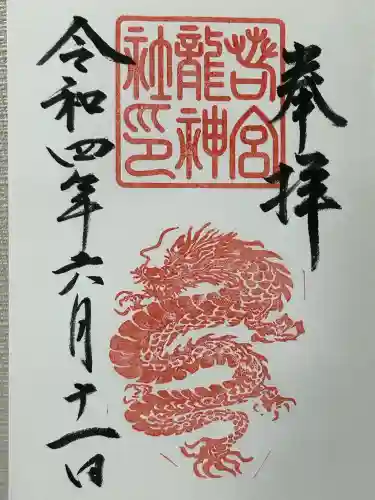 奉拝
若宮
龍神
社印
令和四年六月十一日